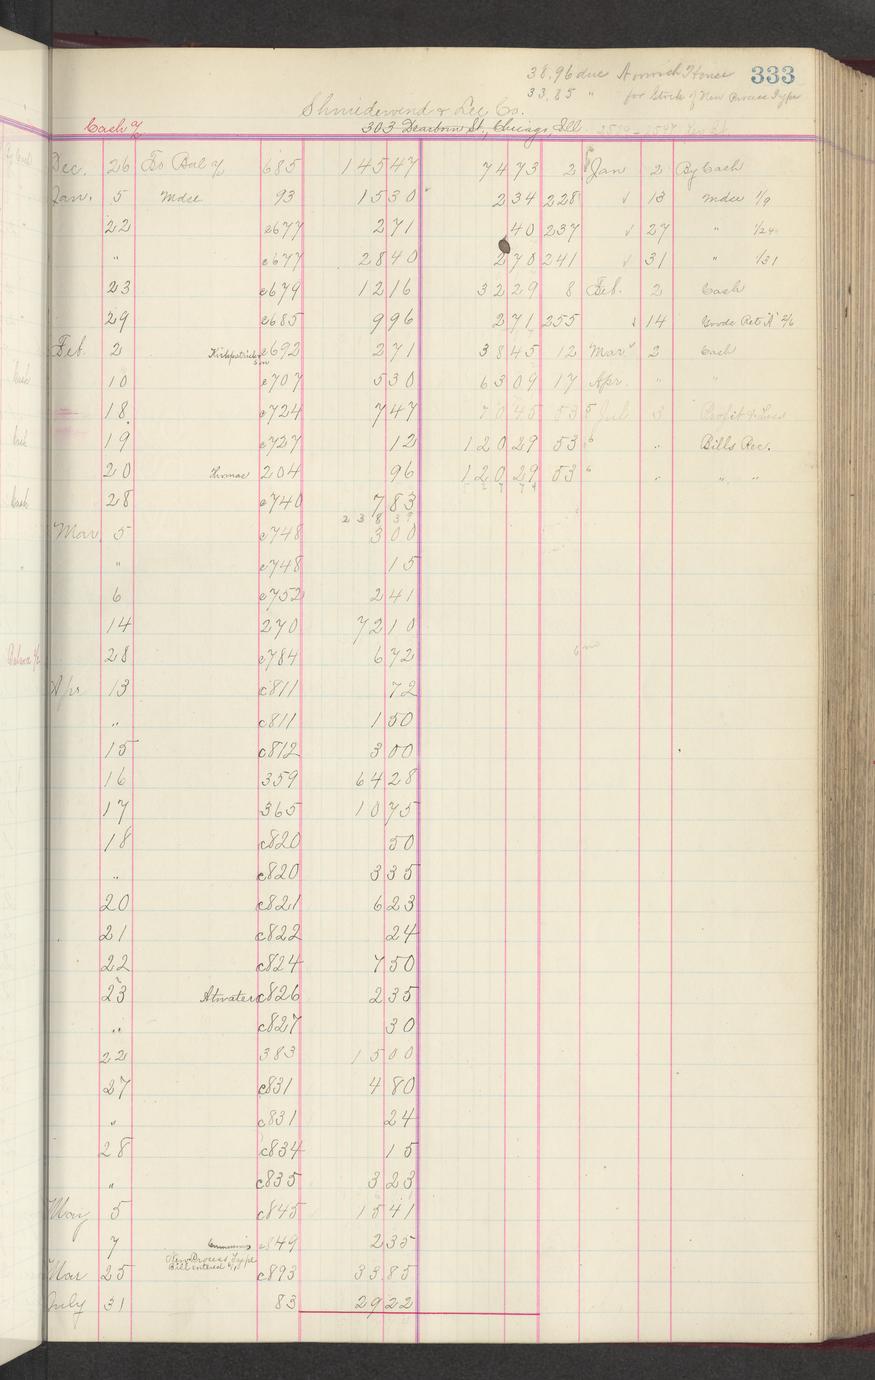 38.96 due Norwich House 333
33.85 " for Stock of New Process Type
Shniedewend & Lee Co.
Cash a/c 303 Dearborn St., Chicago, Ill.
Dec. 26 To Bal a/c 685 145 47 74 73 2 Jan 2 By Cash
Jan. 5 Mdse 93 15 30 2 34 228 √ 13 Mdse 1/9
22 c677 2 71 40 237 √ 27 " 1/24
" c677 28 40 2 70 241 √ 31 " 1/31
23 c679 12 16 32 29 8 Feb. 2 Cash
29 c685 9 96 2 71 255 √ 14 Goods Ret'd 2/6
Feb. 2 c692 2 71 38 45 12 Mar 2 Cash
10 c707 5 30 63 09 17 Apr. " "
18 c724 7 47 70 45 53 Jul 3 Profit & Loss
19 c727 12 120 29 53 " Bills Rec.
20 Thomas 204 96 120 29 53 " " "
28 c740 7 83
238 39
Mar 5 c748 3 00
" c748 15
6 c752 2 41
14 270 72 10
28 c784 6 72
Apr 13 c811 72
" c811 1 50
15 c812 3 00
16 359 64 28
17 365 10 75
18 c820 50
" c820 3 35
20 c821 6 23
21 c822 24
22 c824 7 50
23 Atwater c826 2 35
" c827 30
22 383 15 00
27 c831 4 80
" c831 24
28 c834 15
" c835 3 23
May 5 c845 15 41
7 Cummins c849 2 35
New Process Type
Bill entered
Mar 25 c893 33 85
July 31 83 29 22